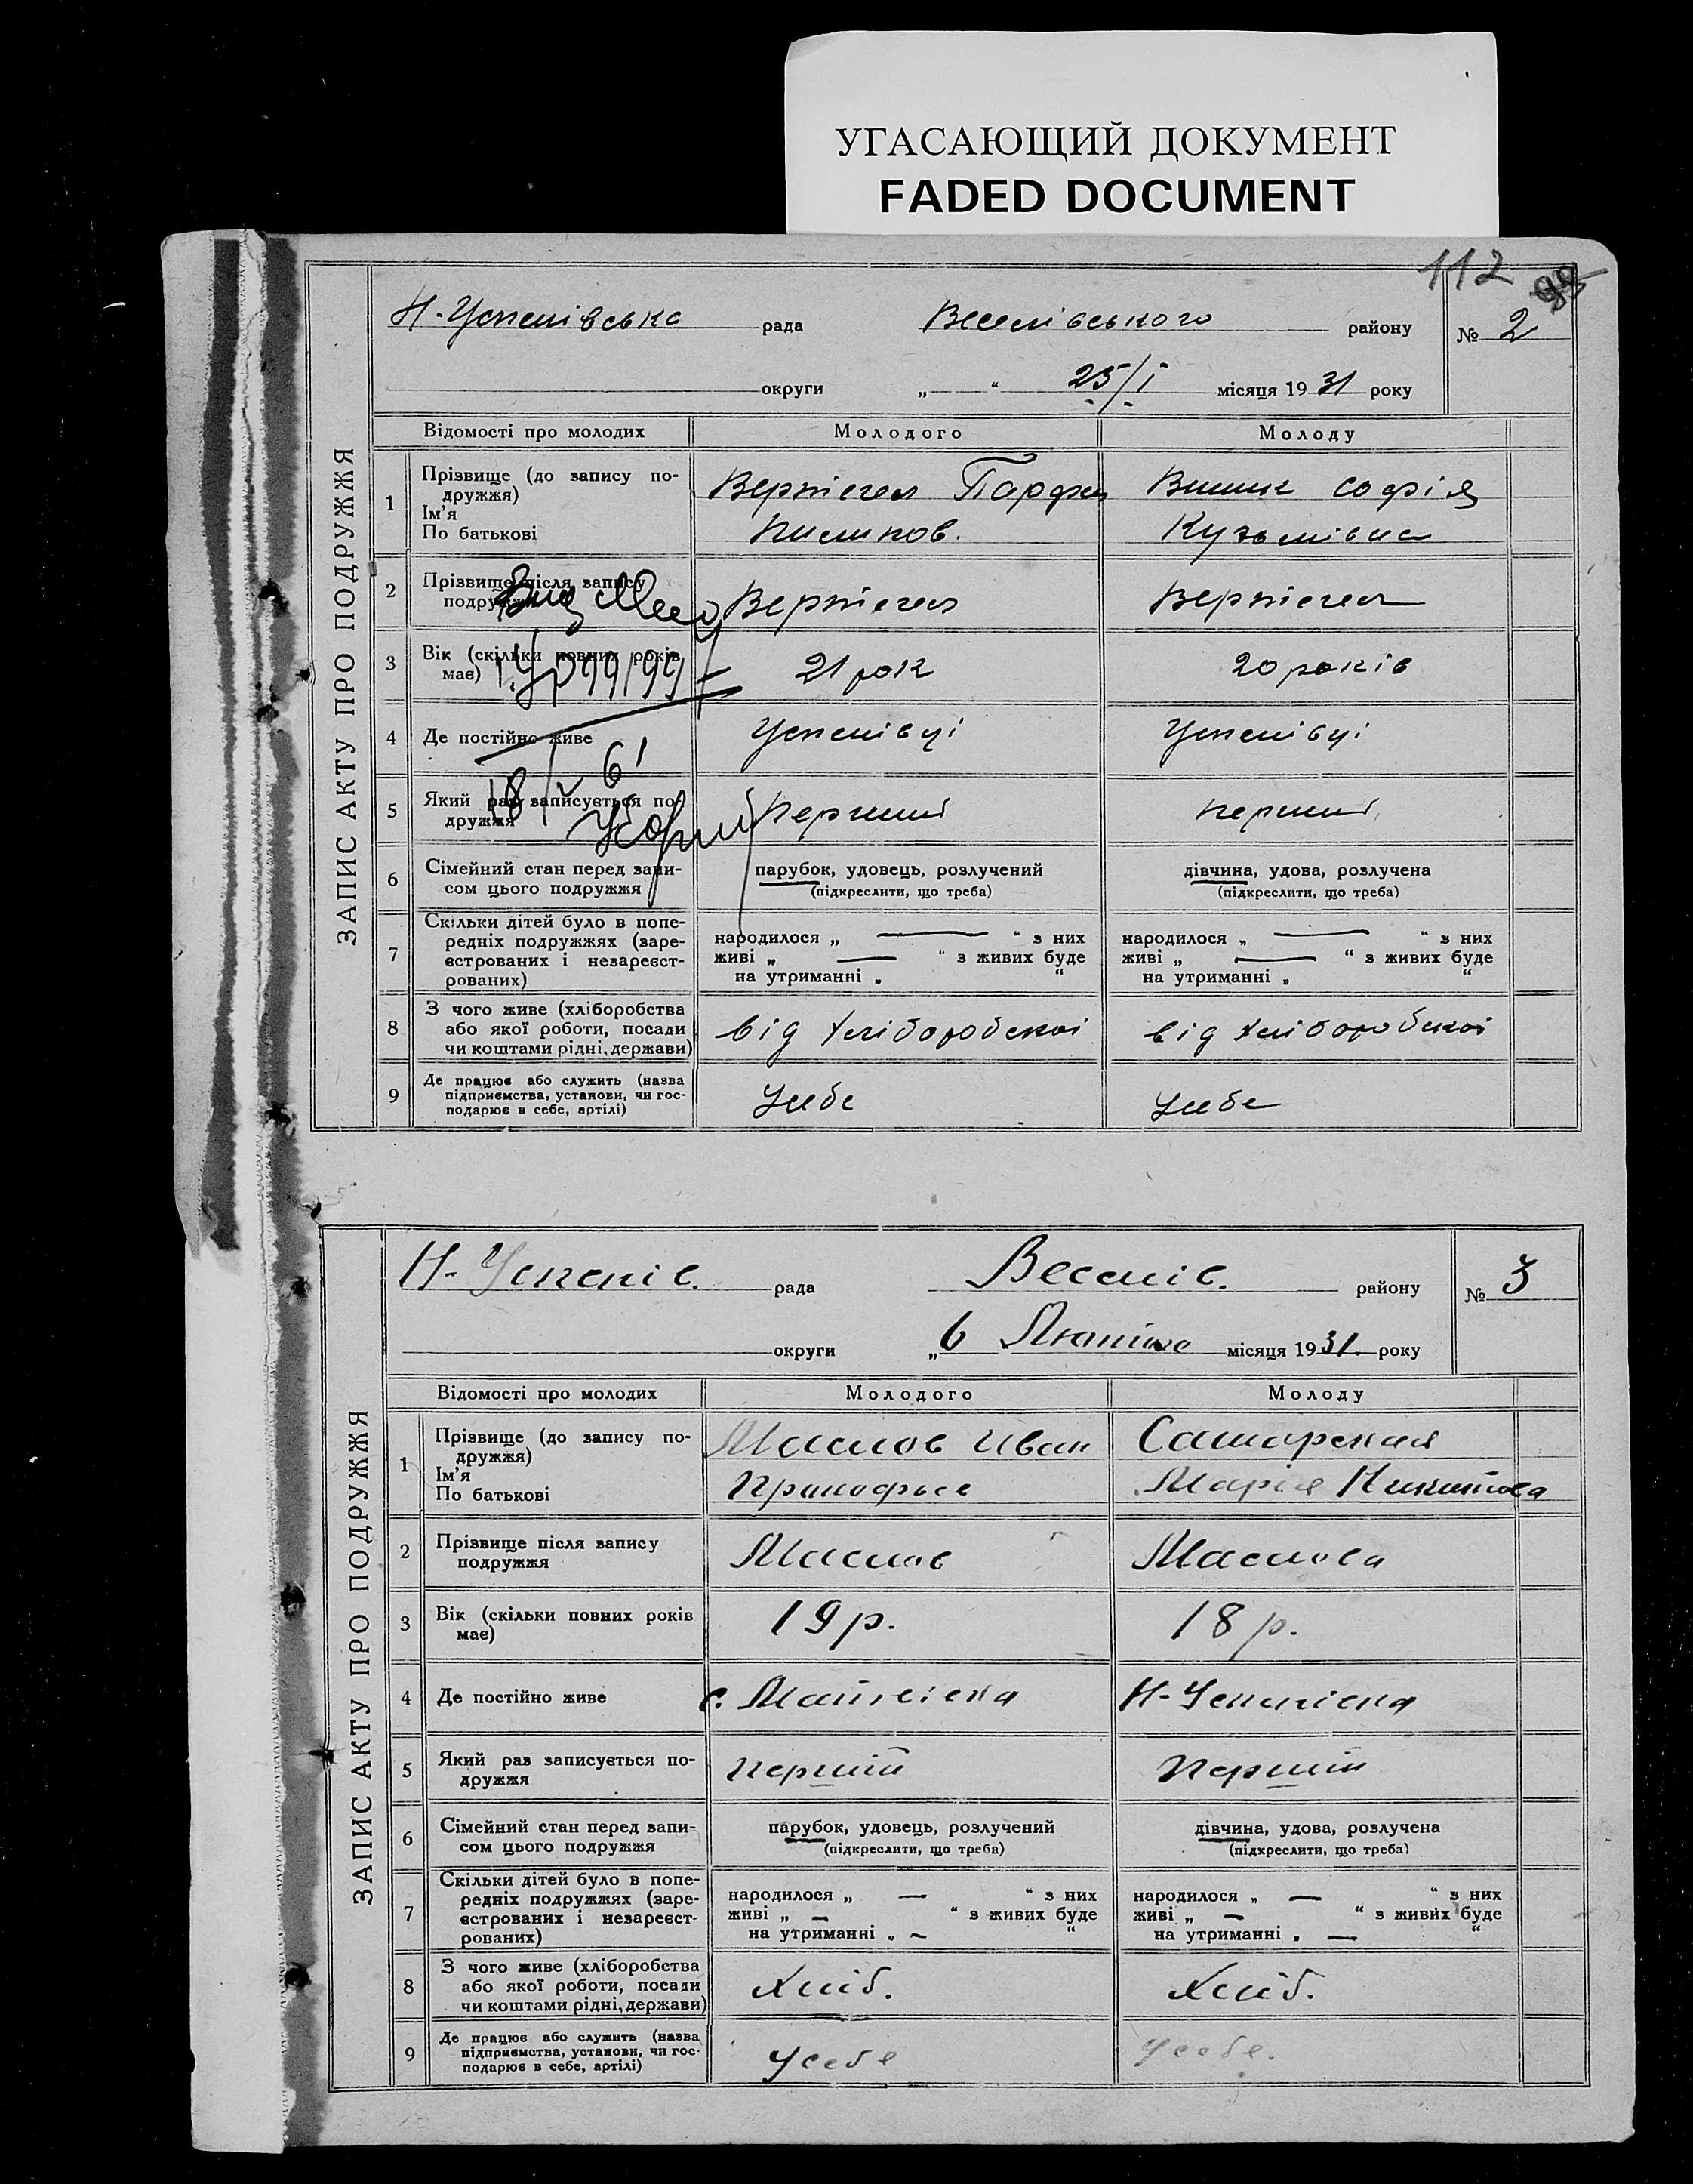 УГАСАЮЩИЙ ДОКУМЕНТ
FADED DOCUMENT
112
Н-Успенівська рада Веселівського району № 2
округи „ “ 25/I місяця 1931 року
ЗАПИС АКТУ ПРО ПОДРУЖЖЯ
Відомості про молодих Молодого Молоду
1 Прізвище (до запису по-
дружжя)
Ім’я
По батькові
Вертегел
Пилипов.
Софія
Кузьмівна
2 Прізвище після запису
подружжя
Вертегел Вертегел
3 Вік (скільки повних років
має)
21 рок 20 років
4 Де постійно живе Успенівці Успенівці
5 Який раз записується по-
дружжя
перший перший
6 Сімейний стан перед запи-
сом цього подружжя
парубок, удовець, розлучений
(підкреслити, що треба)
дівчина, удова, розлучена
(підкреслити, що треба)
7 Скільки дітей було в попе-
редніх подружжях (заре-
єстрованих і незареєст-
рованих)
народилося „ — “ з них
живі „ — “ з живих буде
на утриманні „ “
народилося „ — “ з них
живі „ — “ з живих буде
на утриманні „ “
8 З чого живе (хліборобства
або якої роботи, посади
чи коштами рідні, держави)
від від
9 Де працює або служить (назва
підприємства, установи, чи гос-
подарює в себе, артілі)
Усебе Усебе
18/V 61
Н-Успенів. рада Веселів. району № 3
округи „6 Лютого місяця 1931. року
ЗАПИС АКТУ ПРО ПОДРУЖЖЯ
Відомості про молодих Молодого Молоду
1 Прізвище (до запису по-
дружжя)
Ім’я
По батькові
Маслов Иван
Прокофьев
Самарская
Марія Никитова
2 Прізвище після запису
подружжя
Маслов Маслова
3 Вік (скільки повних років
має)
19 р. 18 р.
4 Де постійно живе с. Матвеївка Н-Успенівка
5 Який раз записується по-
дружжя
перший перший
6 Сімейний стан перед запи-
сом цього подружжя
парубок, удовець, розлучений
(підкреслити, що треба)
дівчина, удова, розлучена
(підкреслити, що треба)
7 Скільки дітей було в попе-
редніх подружжях (заре-
єстрованих і незареєст-
рованих)
народилося „ — “ з них
живі „ — “ з живих буде
на утриманні „ — “
народилося „ — “ з них
живі „ — “ з живих буде
на утриманні „ — “
8 З чого живе (хліборобства
або якої роботи, посади
чи коштами рідні, держави)
Хліб. Хліб.
9 Де працює або служить (назва
підприємства, установи, чи гос-
подарює в себе, артілі)
Усебе Усебе.